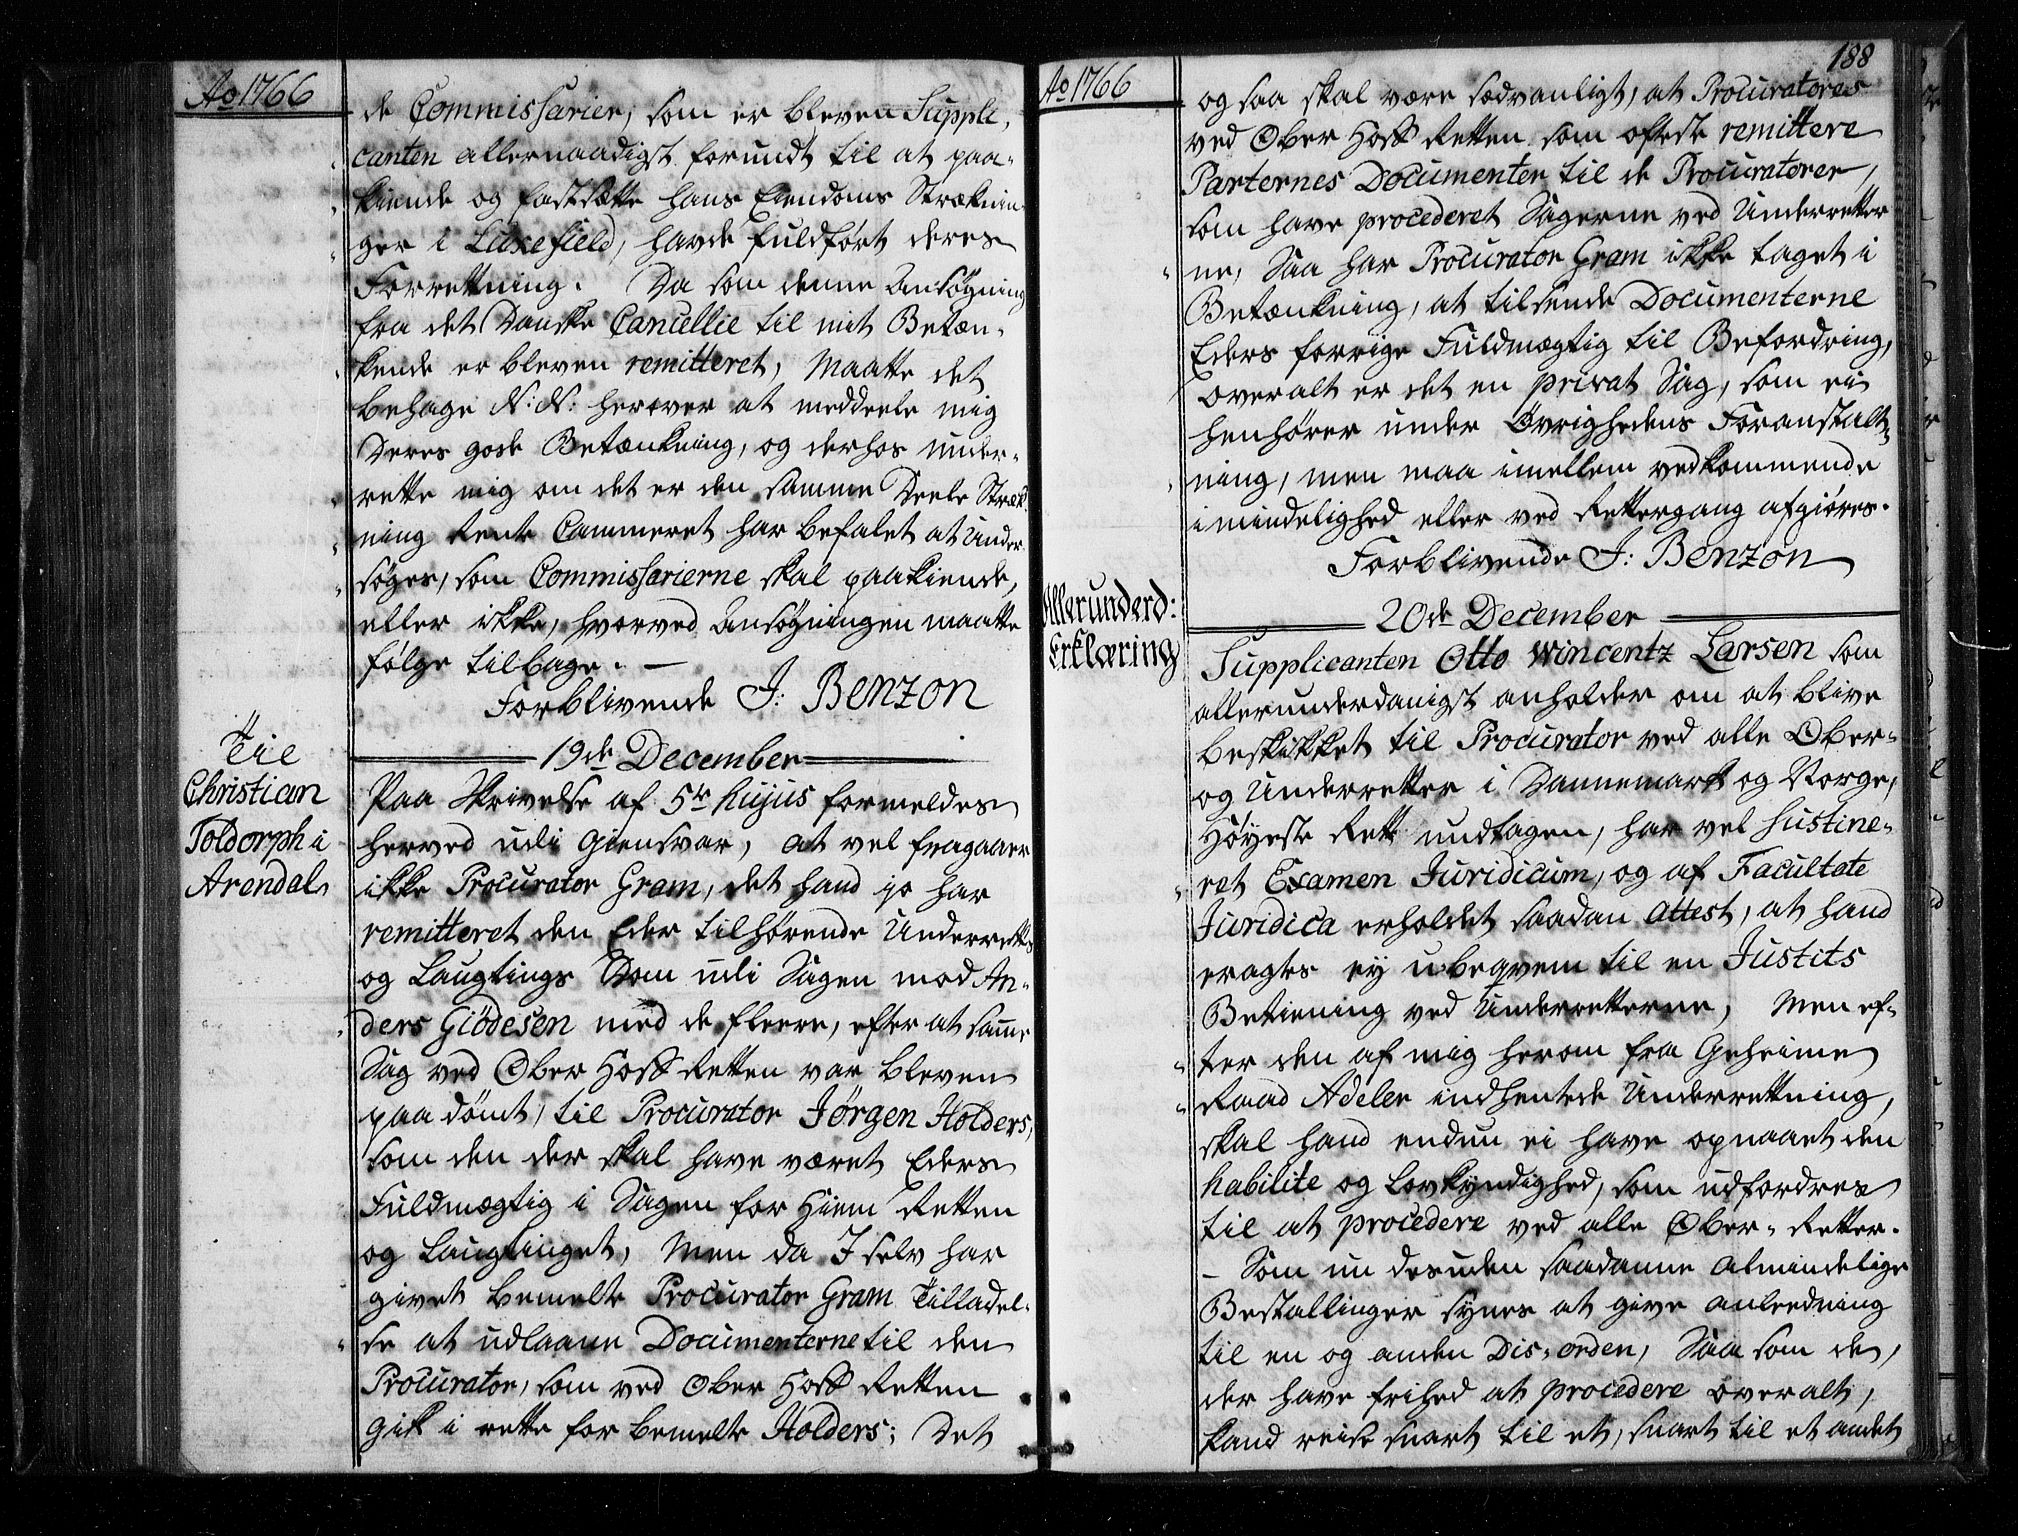 Ao 1766
de Commissarier, som er bleven Suppli-
canten allernaadigst forundt til at paa-
kiende og fastsætte hans Eiendoms Stræknin-
ger i Luxefield, havde fuldført deres
Forrettning. Da som denne Ansøgning
fra det Danske Cancellie til mit Betæn-
kende er bleven remitteret, Maatte det
behage N: N: herover at meddeele mig
Deres gode Betænkning, og derhos under-
rette mig om det er den samme Deele Stræk-
ning Rente Cammeret har befalet at Under-
søges, som Commissarierne skal paakiende,
eller ikke, hvorved Ansøgningen maatte
følge tilbage. —
Forblivende J: Benzon
19de December
Til
Christian
Toldorph i
Arendal
Paa Skrivelse af 5te hujus formeldes
herved udi Giensvar, at vel fragaaer
ikke Procurator Gram, det hand jo har
remitteret den Eder tilhørende Underretts
og Laugtings Dom udi Sagen mod An-
ders Giödesen med de fleere, efter at samme
Sag ved Ober Hoff Retten var bleven
paadømt, til Procurator Jørgen Holders,
som den der skal have været Eders
Fuldmægtig i Sagen for Hiem Retten
og Laugtinget, Men da I selv har
givet bemelte Procurator Gram Tilladel-
se at udlaane Documenterne til den
Procurator, som ved Ober Hoff Retten
gik i rette for bemelte Holders; Det
Ao 1766
188
og saa skal være sædvanligt, at Procuratores
ved Ober Hoff Retten som oftest remittere
Parternes Documenter til de Procuratorer,
som have procederet Sagerne ved Underretter
ne, Saa har Procurator Gram ikke taget i
Betænkning, at tilsende Documenterne
Eders forrige Fuldmægtig til Befordring,
overalt er det en privat Sag, som ei
henhører under Øvrighedens Foranstalt-
ning, men maa imellem vedkommende
i mindelighed eller ved Rettergang afgiøres.
Forblivende J: Benzon
20de December
Allerunderd:
Erklæring
Supplicanten Otto Wincentz Larsen som
allerunderdanigst anholder om at blive
beskikket til Procurator ved alle Ober-
og Underretter i Dannemark og Norge,
Høyeste Rett undtagen, har vel sustine-
ret Examen Juridicum, og af Facultate
Juridica erholdet saadan Attest, at hand
eragtes ey ubeqvem til en Justits
Betiening ved Underretterne, Men ef-
ter den af mig herom fra Geheime
Raad Adeler indhentede Underrettning,
skal hand endnu ei have opnaaet den
habilite og Lovkyndighed, som udfordres
til at procedere ved alle Ober-Retter.
— Som nu desuden saadanne Almindelige
Bestallinger synes at give anleedning
til en og anden Dis-orden, Saa som de,
der have frihed at procedere overalt,
kand reise snart til et, snart til et andet